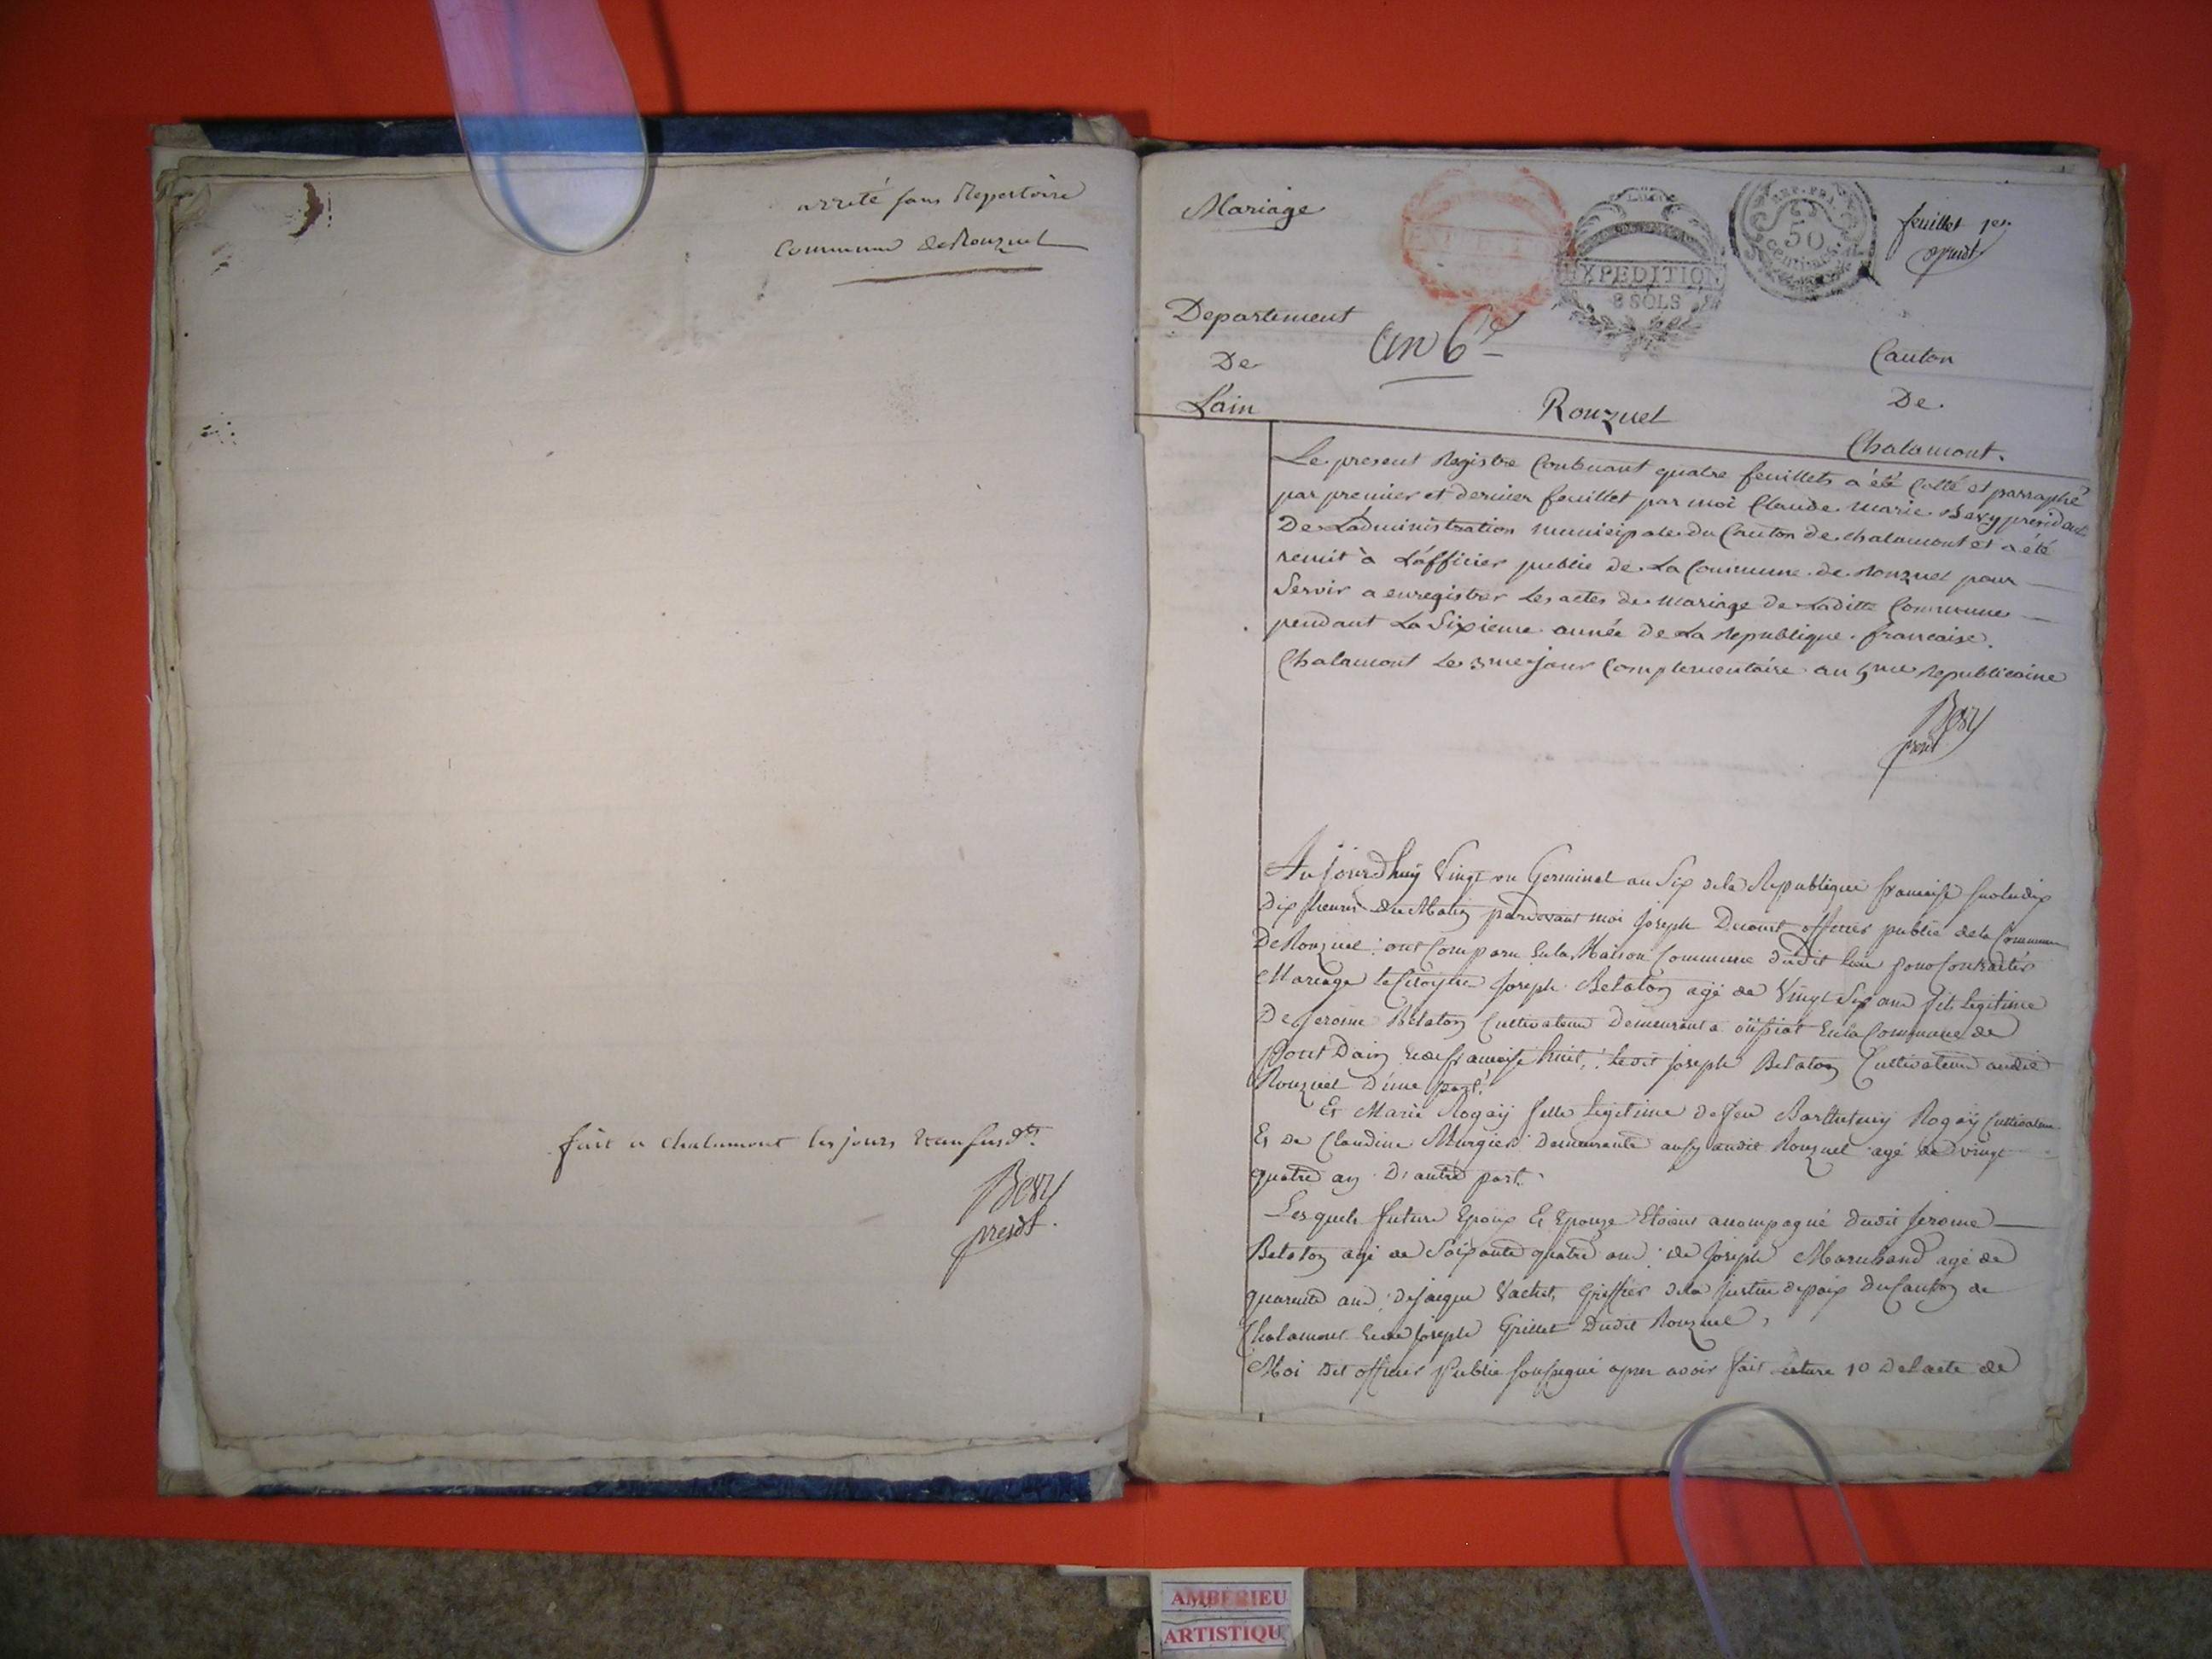 arreté sans Repertoire
Commune de Ronzuel
fait a Chalamont les jours et an susdts
Bevy
presdt.
Mariage
EXPEDITION
8 SOLS
REP. FRA.
50
centimes
feuillet 1er
presdt
Departement
De
Lain
an 6e
Ronzuel
Canton
De
Chalamont.
Le present Registre Contenant quatre feuillets a été Cotté et parraphé
par premier et dernier feuillet par moi Claude Marie Bevy president
De Ladministration municipale du Canton de chalamont et a été
remit à L'afficier public de La Commune de Ronzuel pour
Servir a enregistrer Les actes de Mariage de Laditte Commune
pendant La Sixieme année de La Republique francaise.
Chalamont Le 3me jour Complementaire an 5me Republicaine
Bevy
presdt
Aujourdhuy Vingt un Germinal an Six de la Republique francaise
Dix heures du Matin pardevant moi Joseph Decourt officier public de la Commune
De Ronzuel ont Comparu En la Maison Commune dudit lieu pour Contracter
Mariage le Citoyen Joseph Belaton agé de Vingt Six ans fil legitime
De jerome Belaton Cultivateur Demeurant a oussiat En la Commune de
Pont Dain et de francoise huit, ledit joseph Belaton Cultivateur audit
Ronzuel D'une part.
Et Marie Rogay fille legitime de feu Barthelmy Rogay Cultivateur
Et de Claudine Murgier Demeurante aussy audit Ronzuel agé de vingt
quatre an D'autre part.
Lesquels future Epoux Et Epouze Etoient acompagné dudit Jerome
Belaton agé de Soixante quatre ans de Joseph Marchand agé de
quarente ans, de jacque Vachet, Greffier de la Justice de paix du Canton de
Chalamont et de Joseph Grillet dudit Ronzuel,
Moi dit officier Public soussigné apres avoir fait lecture 1o De Lacte de
AMBERIEU
ARTISTIQU